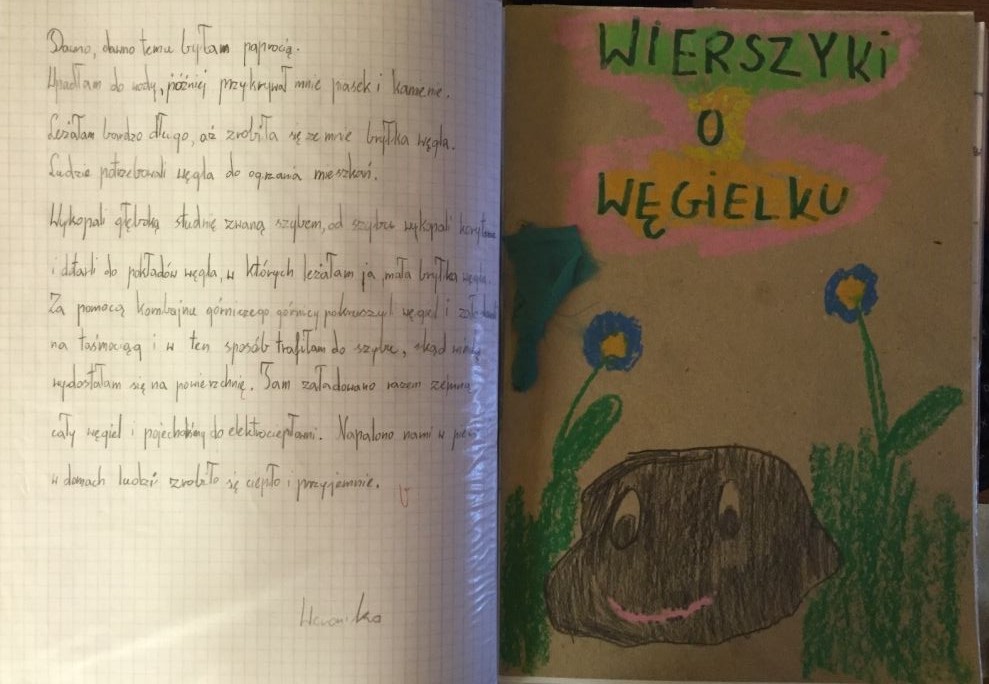 Dawno, dawno temu byłam paprocią.
Upadłam do wody, później przykrywał mnie piasek i kamienie.
Leżałam bardzo długo, aż zrobiła się ze mnie bryłka węgla.
Ludzie potrzebowali węgla do ogrzania mieszkań.
Wykopali głęboką studnię zwaną szybem, od szybu wykopali
i dotarli do pokładów węgla, w których leżałam ja, mała bryłka
Za pomocą kombajnu górniczego górnicy pokruszyli węgiel i
na taśmociąg i w ten sposób trafiłam do szybu, skąd
wydostałam się na powierzchnię. Tam załadowano razem zemną
cały węgiel i do elektrociepłowni. Napalono nami w
w domach ludzi zrobiło się ciepło i przyjemnie.
Weronika
WIERSZYKI
O
WĘGIELKU